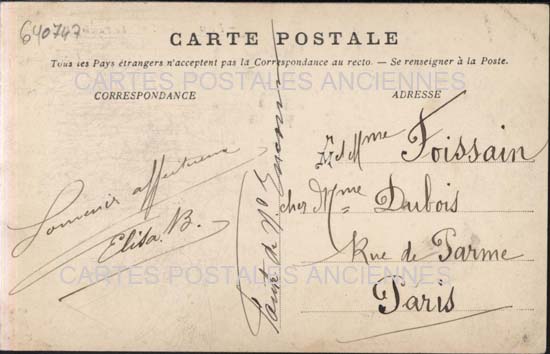 640747
CARTE POSTALE
Tous les Pays étrangers n'acceptent pas la Correspondance au recto. — Se renseigner à la Poste.
CARTES POSTALES ANCIENNES
CORRESPONDANCE
ADRESSE
Souvenir affectueux
Elisa. B.
de
Mme Foissain
chez Mme Dubois
Rue de Parme
Paris
CARTES POSTALES ANCIENNES